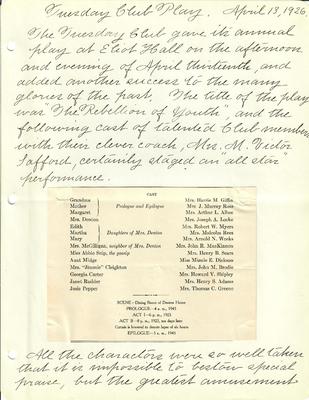 Tuesday Club Play. April 13, 1926
The Tuesday Club gave its annual
play at Eliot Hall on the afternoon
and evening of April thirteenth, and
added another success to the many
glories of the past. The title of the play
was "The Rebellion of Youth" and the
following cast of talented Club members
with their clever coach, Mrs. M. Victor
Safford, certainly staged an "all star"
performance.
CAST
Grandma Mrs. Harrie M. Giffin
Mother Prologue and Epilogue Mrs. J. Murray Ross
Margaret Mrs. Arthur L.
Mrs. Denton Mrs. Joseph A. Locke
Edith Mrs. Robert W. Myers
Martha Daughters of Mrs. Denton Mrs. Malcolm Rees
Mary Mrs. Arnold N. Weeks
Mrs. McGilligan, neighbor of Mrs. Denton Mrs. John R. MacKinnon
Miss Abbie Strip, the gossip Mrs. Henry B. Sears
Aunt Midge Miss Minnie E. Dickson
Mrs. "Bunnie" Cleighton Mrs. John M. Brodie
Georgia Carter Mrs. Howard V. Shipley
Janet Rudder Mrs. Henry S. Adams
Josie Pepper Mrs. Thomas C. Greene
SCENE—Dining Room of Denton Home
PROLOGUE—4 p. m., 1945
ACT I—4 p. m., 1925
ACT II—8 p. m., 1925, ten days later
Curtain is lowered to denote lapse of six hours
EPILOGUE—5 p. m., 1945
All the characters were so well taken
that it is impossible to bestow special
praise, but the greatest amusement